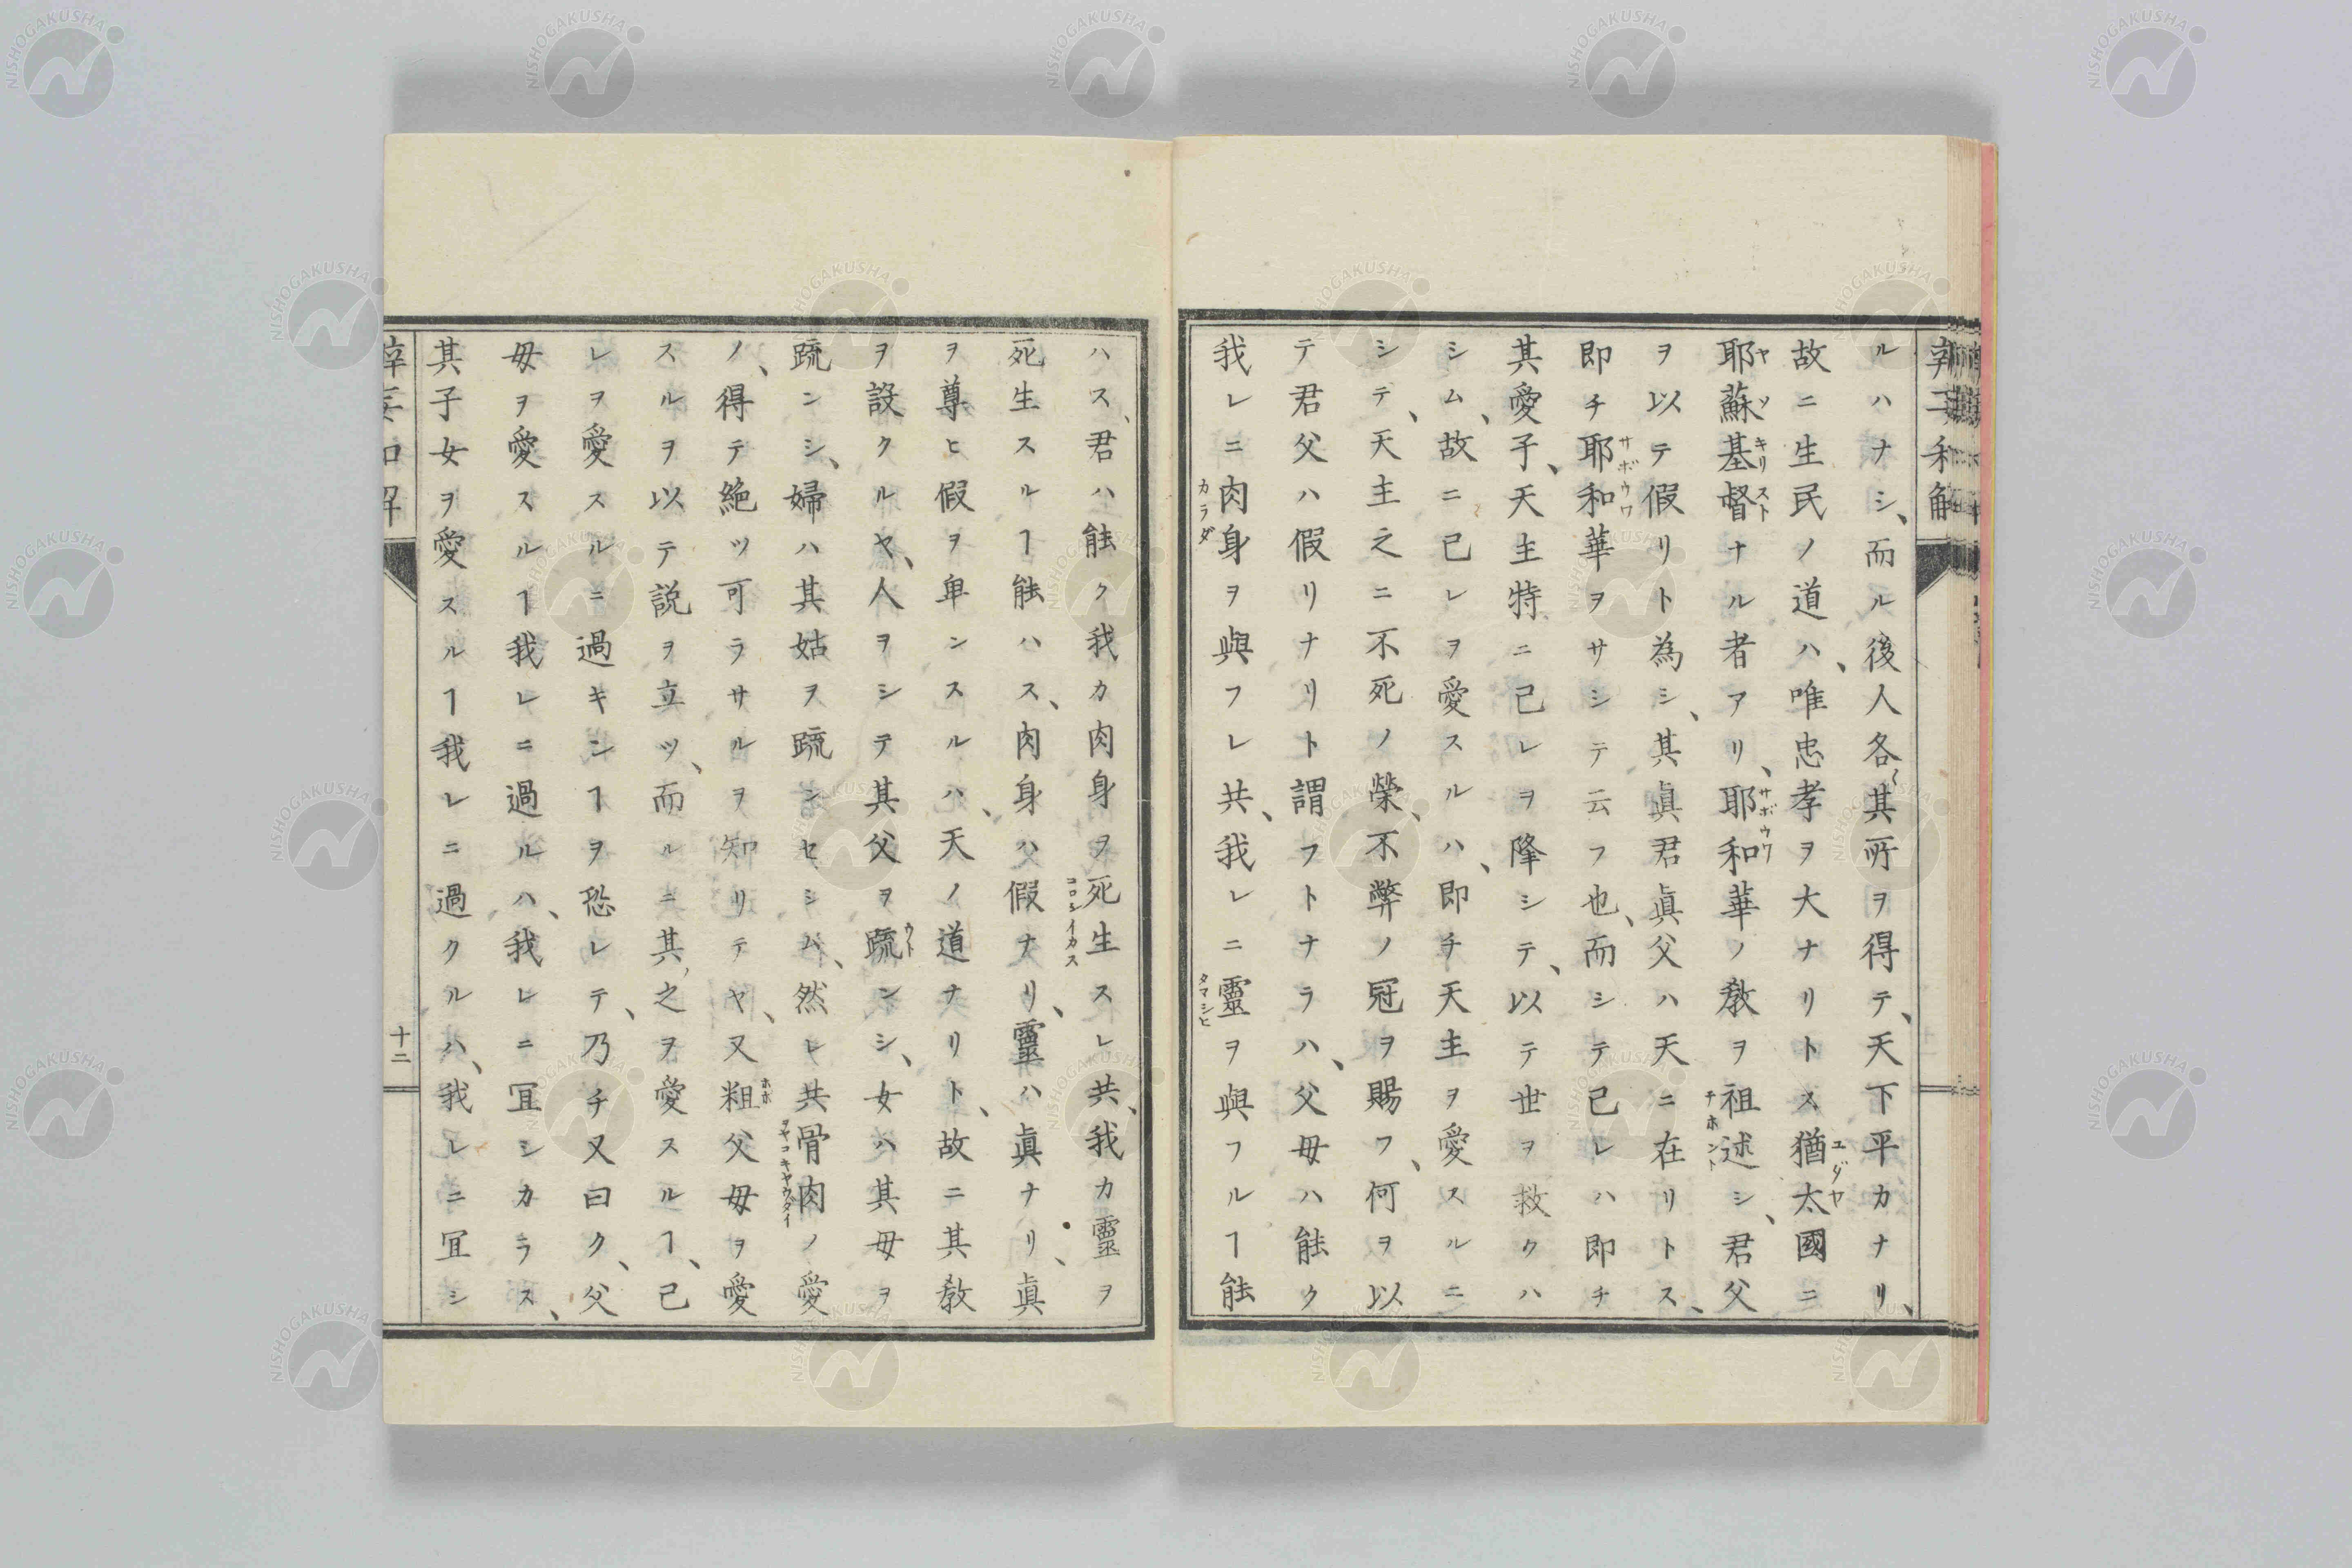 ルハナシ、而ル後人各〻其所ヲ得テ、天下平カナリ、
故ニ生民ノ道ハ、唯忠孝ヲ大ナリトス猶太國ニ
耶蘇基督ナル者アリ、耶和華ノ教ヲ祖述シ、君父
ヲ以テ假リト為シ、其眞君眞父ハ天ニ在リトス、
即チ耶和華ヲサシテ云フ也、而シテ己レハ即チ
其愛子、天主特ニ己レヲ降シテ、以テ世ヲ救クハ
シム、故ニ己レヲ愛スルハ、即チ天主ヲ愛スルニ
シテ、天主之ニ不死ノ榮、不弊ノ冠ヲ賜フ、何ヲ以
テ君父ハ假リナリト謂フトナラハ、父母ハ能ク
我レニ肉身ヲ與フレ共、我レニ靈ヲ與フルヿ能
ハス、君ハ能ク我カ肉身ヲ死生スレ共、我カ靈ヲ
死生スルヿ能ハス、肉身ハ假ナリ、靈ハ眞ナリ、眞
ヲ尊ヒ假ヲ卑ンスルハ、天ノ道ナリト、故ニ其教
ヲ設クルヤ、人ヲシテ其父ヲ疏ンシ、女ハ其母ヲ
疏ンシ、婦ハ其姑ヲ疏ンセシム、然レ共骨肉ノ愛
ノ、得テ絶ツ可ラサルヲ知リテヤ、又粗父母ヲ愛
スルヲ以テ説ヲ立ツ、而ルニ其之ヲ愛スルヿ、己
レヲ愛スルニ過キンヿヲ恐レテ、乃チ又曰ク、父
母ヲ愛スルヿ我レニ過ルハ、我レニ冝シカラス、
其子女ヲ愛スルヿ我レニ過クルハ、我レニ冝シ
十二
NISHOGAKUSHA